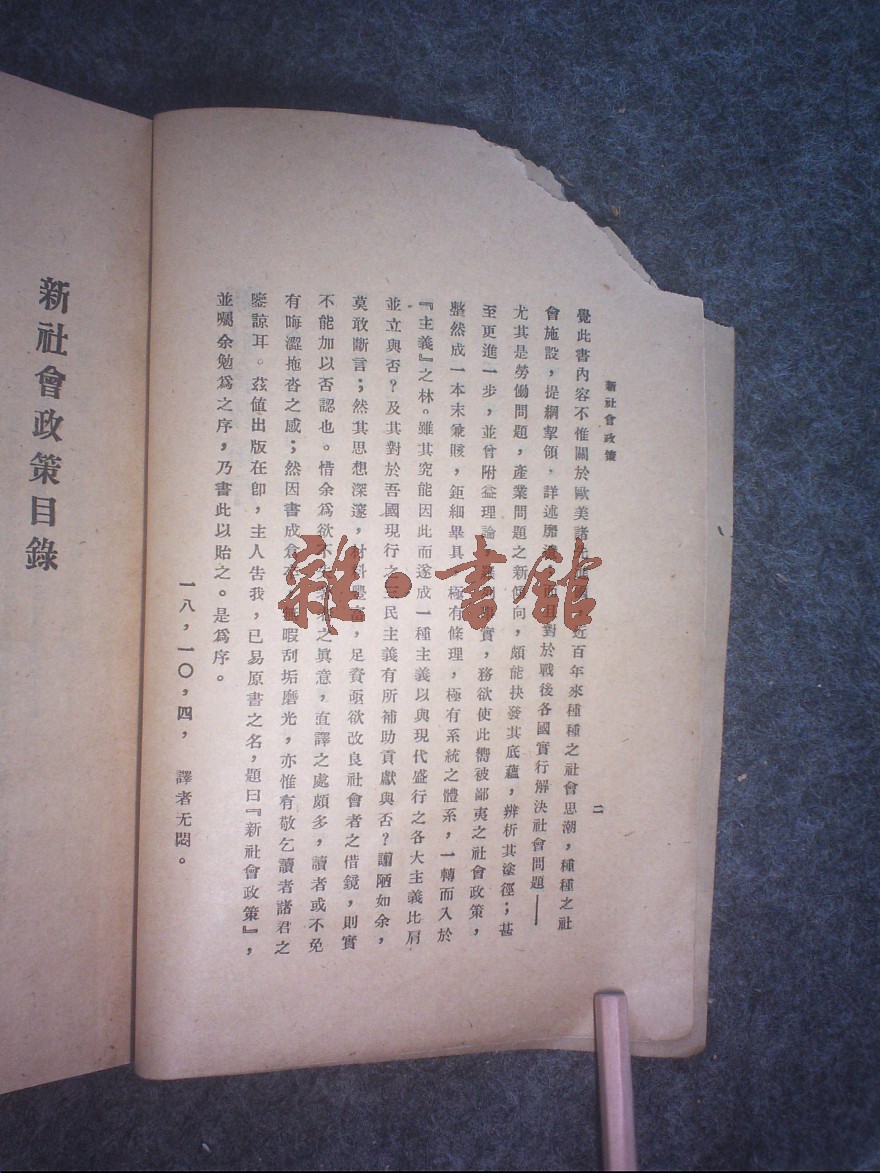 新社會政策
二
覺此書內容不惟關於歐美諸近百年來種種之社會思潮，種種之社
會施設，提綱挈領，詳述靡對於戰後各國實行解決社會問題——
尤其是勞働問題，產業問題之新傾向，頗能抉發其底蘊，辨析其塗徑；甚
至更進一步，並曾附益理論，實，務欲使此嚮被鄙夷之社會政策，
整然成一本末兼賅，鉅細畢具，極有條理，極有系統之體系，一轉而入於
『主義』之林。雖其究能因此而遂成一種主義以與現代盛行之各大主義比肩
並立與否？及其對於吾國現行之三民主義有所補助貢獻與否？譾陋如余，
莫敢斷言；然其思想深邃，材料豐富，足資亟欲改良社會者之借鏡，則實
不能加以否認也。惜余爲欲不之眞意，直譯之處頗多，讀者或不免
有晦澀拖沓之感；然因書成倉無暇刮垢磨光，亦惟有敬乞讀者諸君之
鑒諒耳。茲值出版在卽，主人告我，已易原書之名，題曰『新社會政策』，
並囑余勉爲之序，乃書此以貽之。是爲序。
一八，一〇，四，譯者无悶。
新社會政策目錄
雜·書館